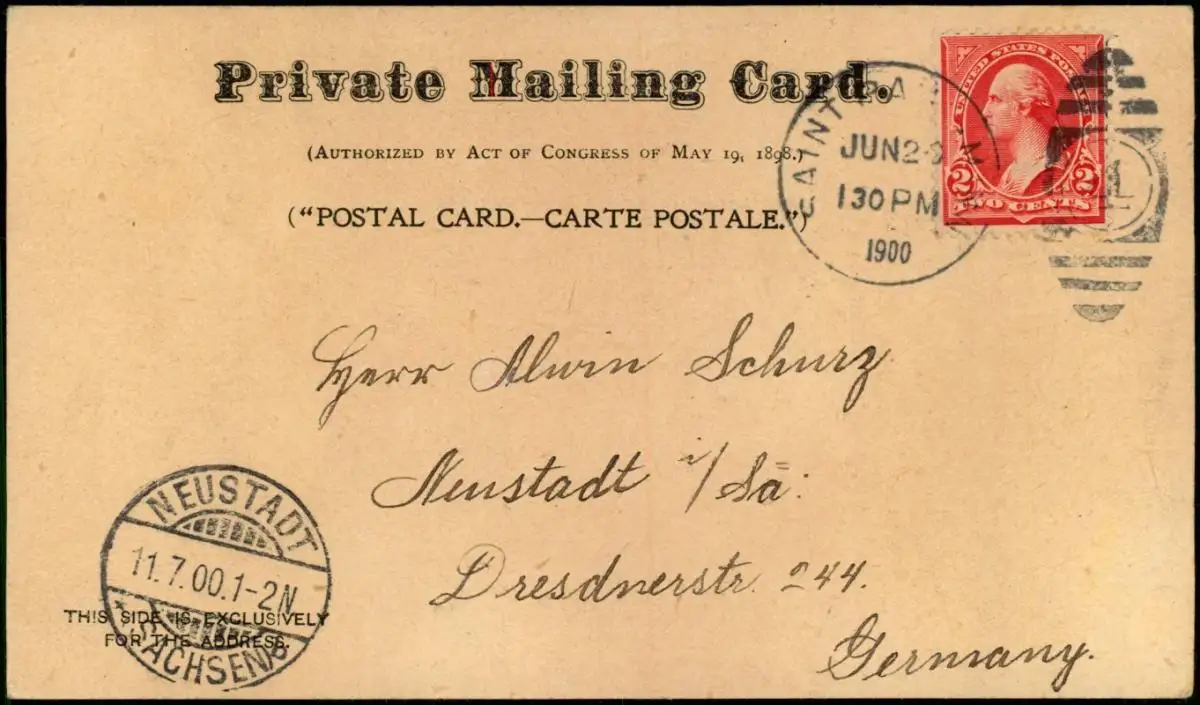 Private Mailing Card.
(AUTHORIZED BY ACT OF CONGRESS OF MAY 19, 1898.)
("POSTAL CARD.—CARTE POSTALE.")
SAINT PA MINN
JUN 2
130 PM
1900
UNITED STATES POSTAGE
2 2
TWO CENTS
Herr Alwin Schurz
Neustadt i/Sa:
Dresdnerstr. 244.
Germany.
NEUSTADT
11.7.00.1-2N
* SACHSEN/b
THIS SIDE IS EXCLUSIVELY
FOR THE ADDRESS.